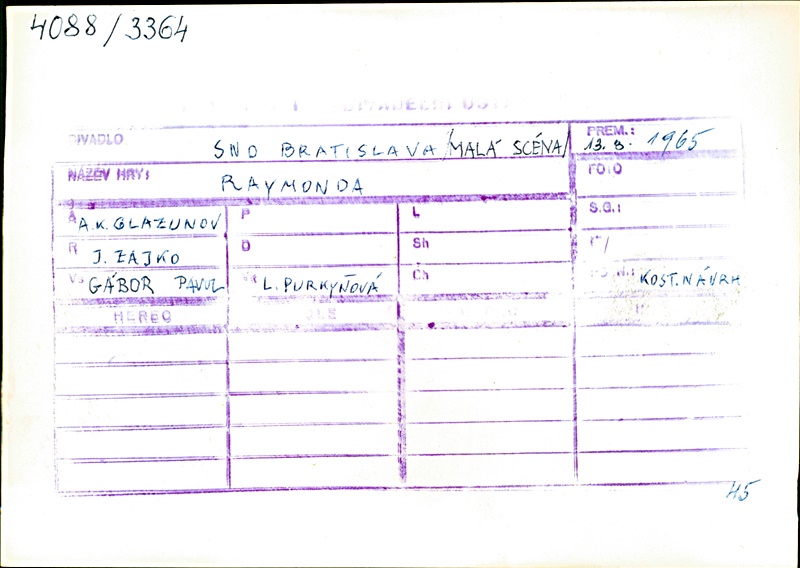 4088/3364
DIVADLO SND BRATISLAVA /MALÁ SCÉNA/ PREM.: 1965
NÁZEV HRY: RAYMONDA FOTO
A A.K. GLAZUNOV P L S.G.:
R J. ZAJKO D Sh
GÁBOR PAVOL L. PURKYŇOVÁ Ch KOST. NÁVRH
HEREC
45